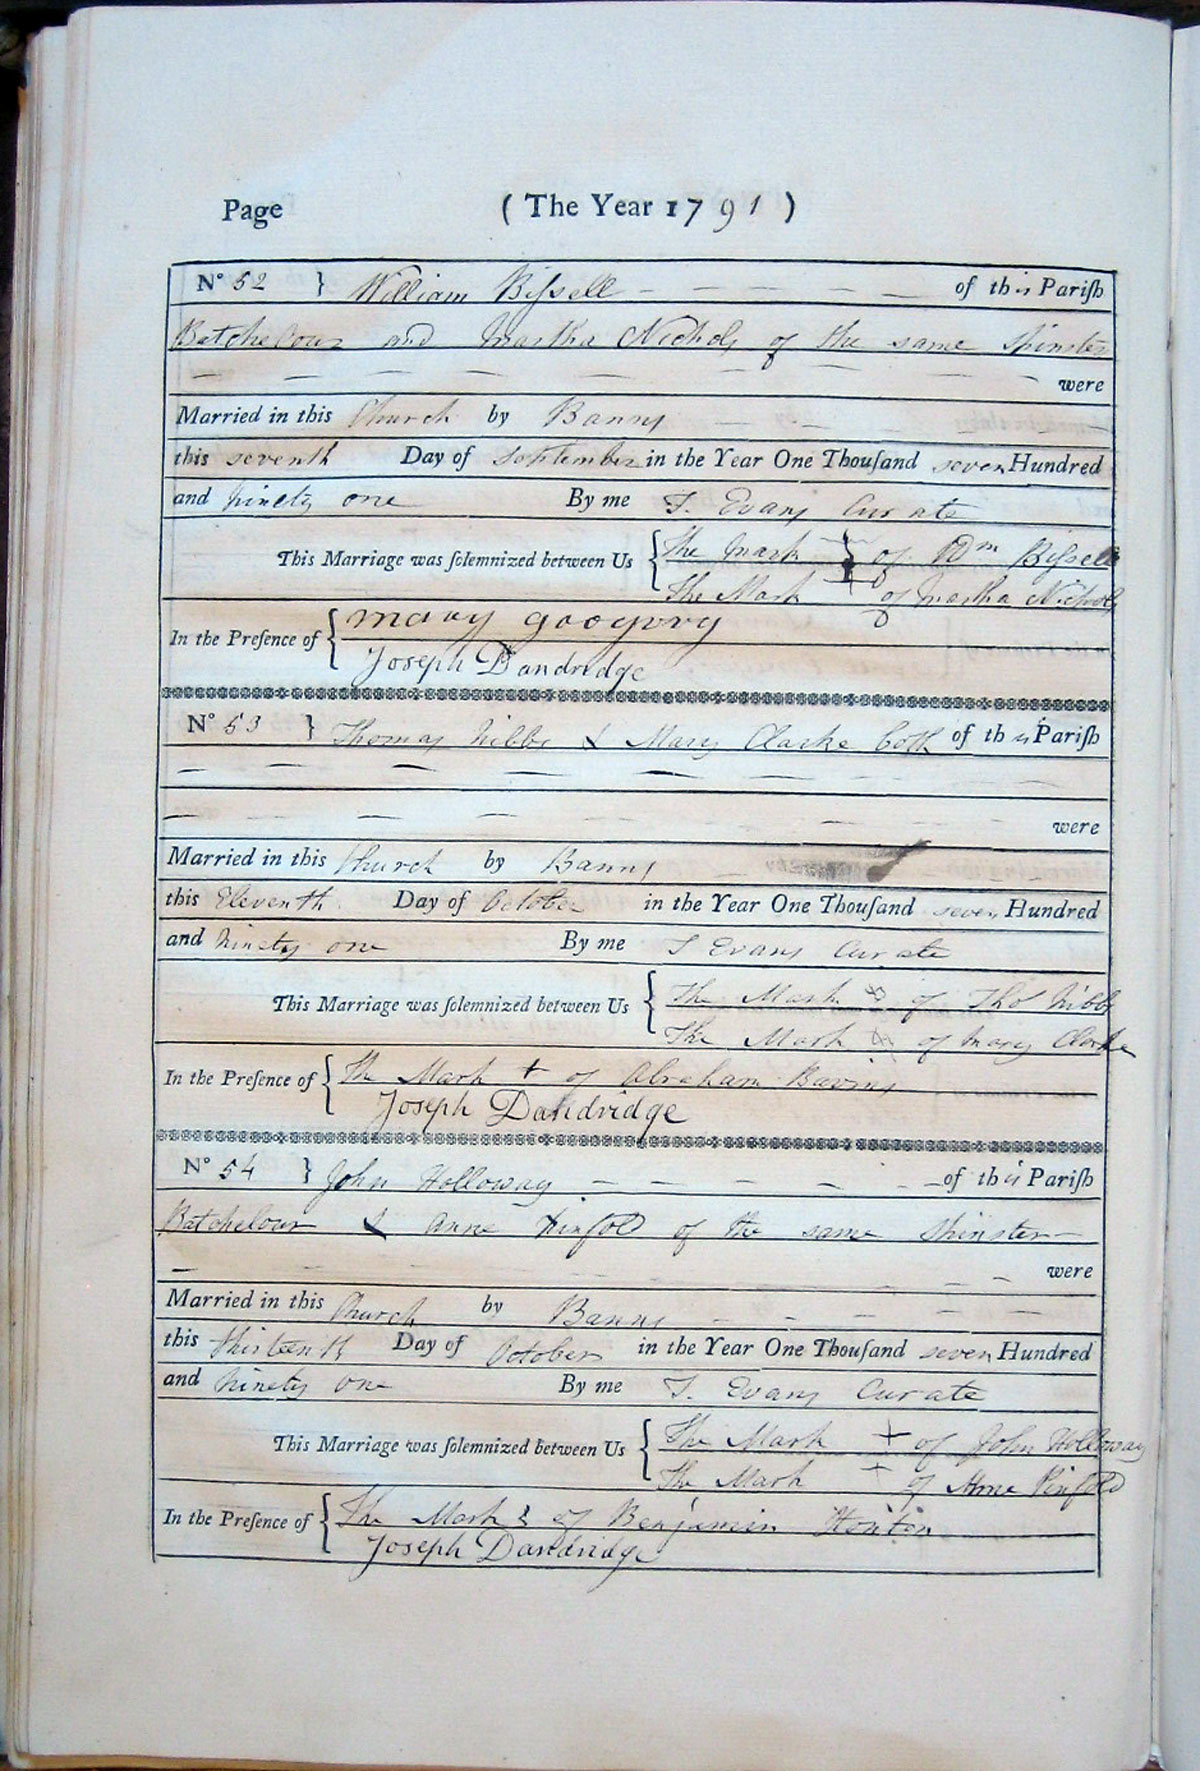 Page (The Year 1791)
No 52 } William Biſsell of this Pariſh
Batchelour and Martha Nichols of the same Spinster
were
Married in this Church by Banns
this seventh Day of September in the Year One Thouſand seven Hundred
and ninety one By me T. Evans Curate
This Marriage was ſolemnized between Us { The Mark } of Wm Biſsell
The Mark of Martha Nichols
In the Preſence of { mary
Joseph Dandridge
No 53 } Thomas Nibbs & Mary Clarke both of this Pariſh
were
Married in this Church by Banns
this Eleventh Day of October in the Year One Thouſand seven Hundred
and ninety one By me T Evans Curate
This Marriage was ſolemnized between Us { The Mark of Thos Nibbs
The Mark of Mary Clarke
In the Preſence of { The Mark + of Abraham
Joseph Dandridge
No 54 } John Holloway of this Pariſh
Batchelour & Anne Pinfold of the same Spinster
were
Married in this Church by Banns
this thirteenth Day of October in the Year One Thouſand seven Hundred
and ninety one By me T. Evans Curate
This Marriage was ſolemnized between Us { The Mark + of John Holloway
The Mark + of Anne Pinfold
In the Preſence of { The Mark of Benjamin Henton
Joseph Dandridge